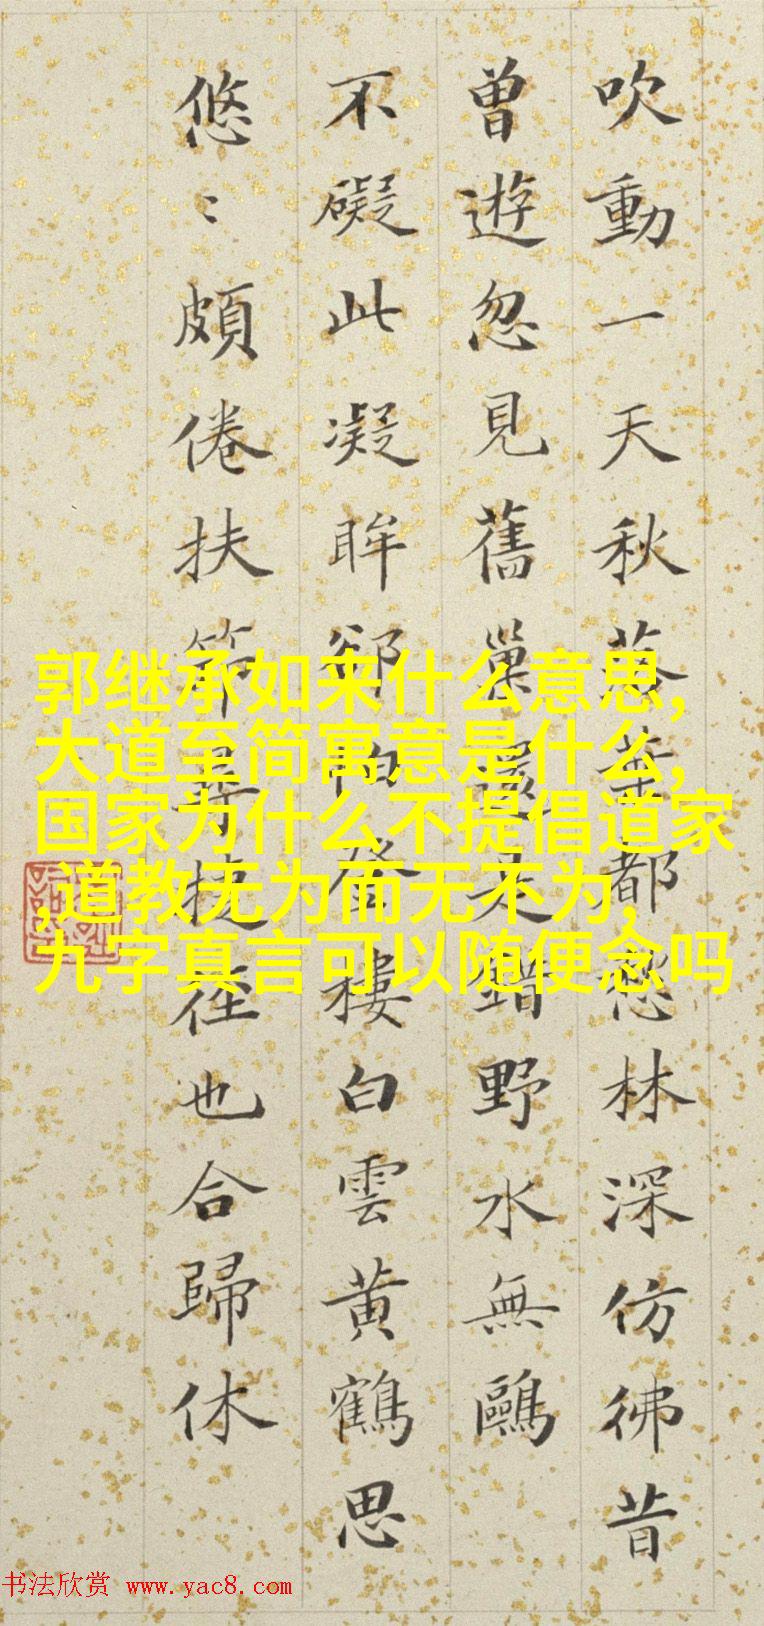 吹動一天秋落葉都愁林深仿彿昔
曾遊忽見舊巢還是錯野水無鷗
不礙此凝眸卻怕登樓白雲黃鶴思
悠〻頗倦扶筇尋捷徑也合歸休
郭继承如来什么意思,
大道至简寓意是什么,
国家为什么不提倡道家
,道教无为而无不为,
九字真言可以随便念吗
书法欣赏 www.yac8.com